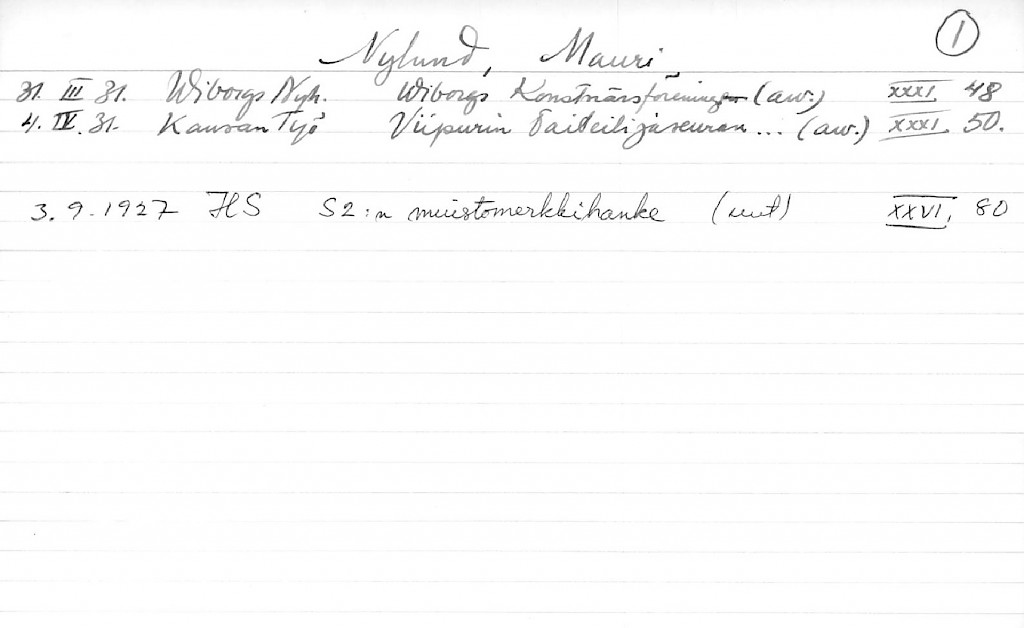 1
Nylund, Mauri
31. III 31. Wiborgs Nyh. Wiborgs Konstnärsföreningen (aw.) XXXI, 48
4. IV. 31. Kansan Työ Viipurin Taiteilijaseuran ... (aw.) XXXI, 50.
3.9.1927 HS S2:n muistomerkkihanke (uut) XXVI, 80